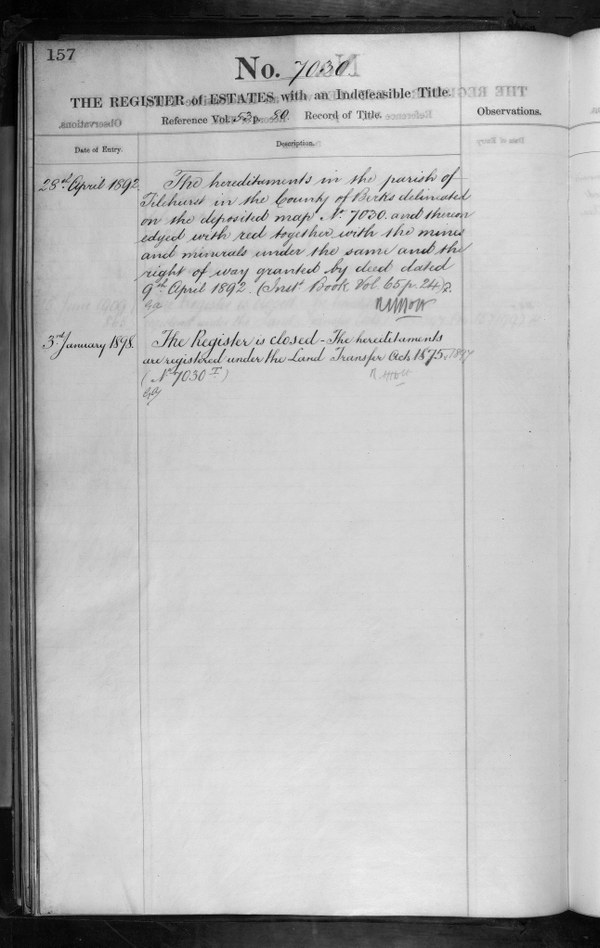 157
No. 7030
THE REGISTER of ESTATES with an Indefeasible Title.
Reference Vol. 53 p. 80. Record of Title.
Observations.
Date of Entry.
Description.
28th April 1892
The hereditaments in the parish of
Tilehurst in the County of Berks delineated
on the deposited map No 7030. and thereon
edged with red together with the mines
and minerals under the same and the
right of way granted by deed dated
9th April 1892. (Inst. Book Vol 65 p. 24).
R H Holt
3rd January 1898.
The Register is closed – The hereditaments
are registered under the Land Transfer Acts 1875, 1897
(No 7030 I)
R H Holt